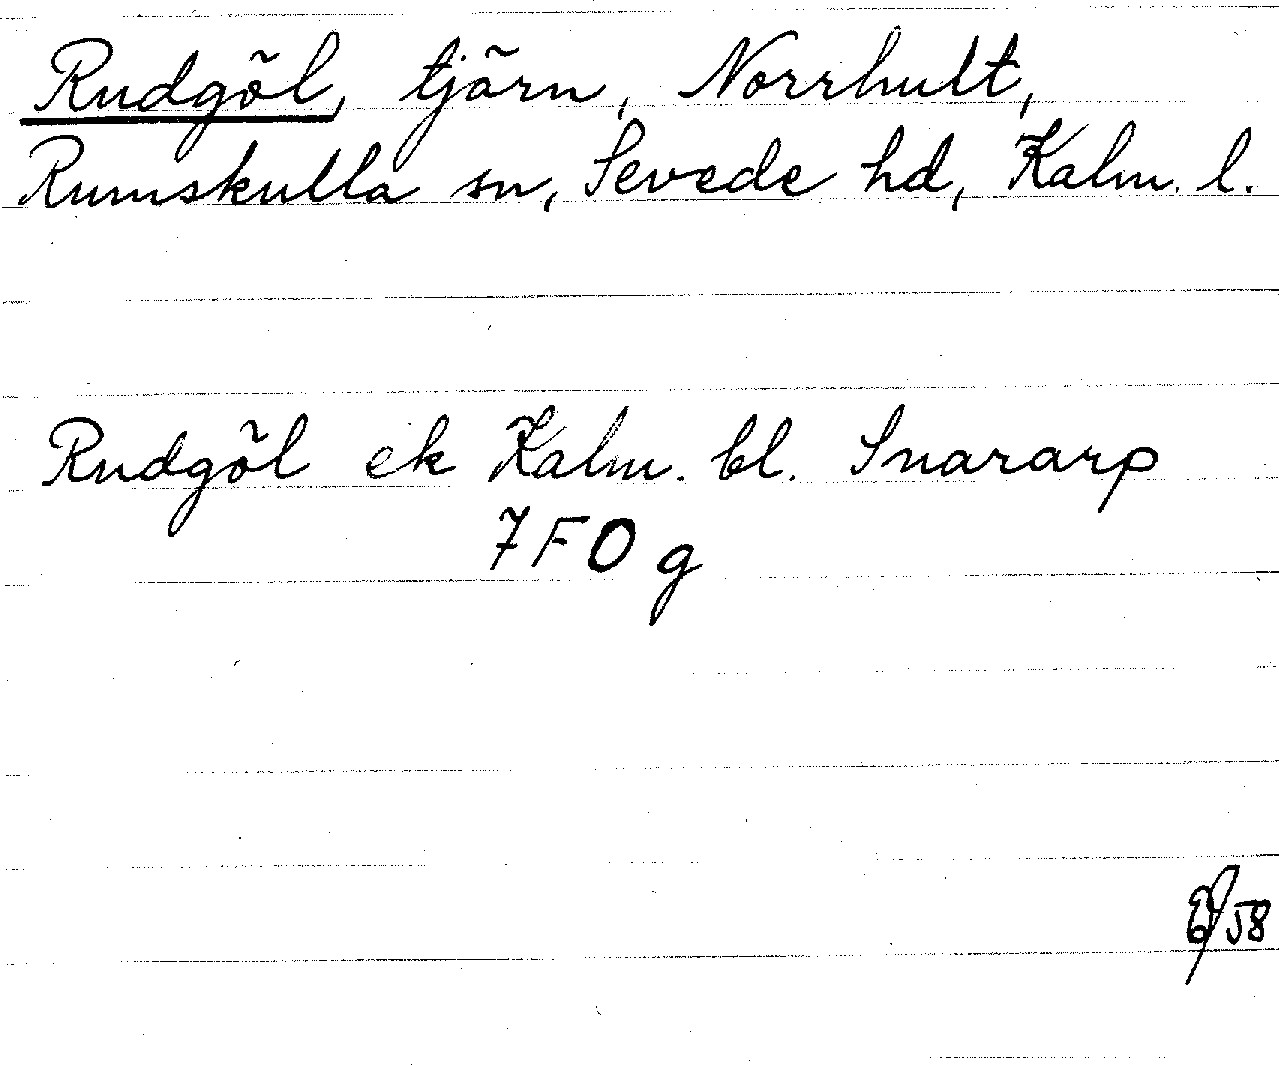 Rudgöl, tjärn, Norrhult,
Rumskulla sn, Sevede hd, Kalm. l.
Rudgöl ek Kalm. bl. Snararp
7F0 g
58